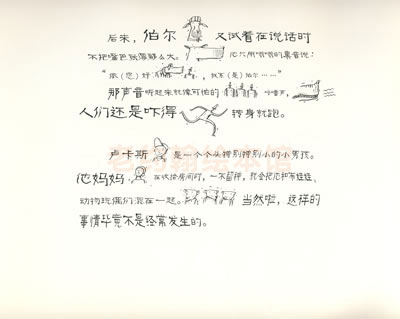 后来，伯尔 又试着在说话时
不把嘴巴张得那么大。 他只用 的鼻音说：
好 ， （是）伯尔……
那声音听起来就像可怕的
人们还是吓得 转身就跑。
老约翰绘本馆
卢卡斯 是一个个头特别特别小的小男孩。
他妈妈 在收拾房间时，一不留神，就会把他和布娃娃、
动物玩偶们混在一起。 当然啦，这样的
事情毕竟不是经常发生的。